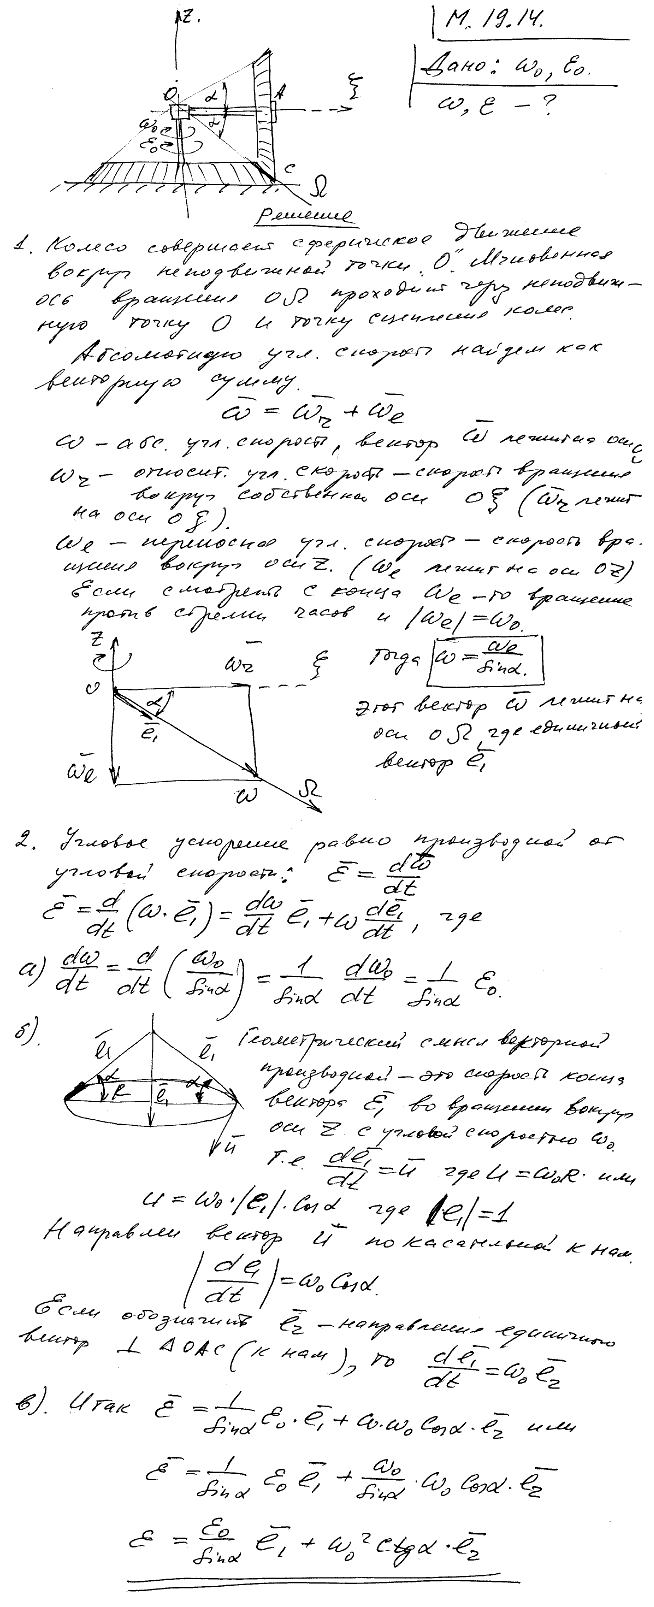 z.
М. 19.14.
Дано: ω₀, ε₀.
ω, ε – ?
O
α
A
ξ
ω₀
ε₀
α
C
Ω
Решение
1. Колесо совершает сферическое движение
вокруг неподвижной точки "O". Мгновенная
ось вращения OΩ проходит через неподвиж-
ную точку O и точку сцепления колес.
Абсолютную угл. скорость найдем как
векторную сумму.
ω̄ = ω̄r + ω̄e
ω – абс. угл. скорость, вектор ω̄ лежит на оси
ωr – относит. угл. скорость – скорость вращения
вокруг собственной оси Oξ (ω̄r лежит
на оси Oξ).
ωe – переносная угл. скорость – скорость вра-
щения вокруг оси z. (ωe лежит на оси OZ)
Если смотреть с конца ωe – то вращение
против стрелки часов и |ωe| = ω₀.
z
ω̄r
ξ
O
α
ē₁
ω̄e
ω
Ω
Тогда ω = ωe/sinα.
Этот вектор ω̄ лежит на
оси OΩ, где единичный
вектор ē₁
2. Угловое ускорение равно производной от
угловой скорости: ε̄ = dω̄/dt
ε̄ = d/dt (ω·ē₁) = dω/dt ē₁ + ω dē₁/dt, где
а) dω/dt = d/dt (ω₀/sinα) = 1/sinα dω₀/dt = 1/sinα ε₀.
б).
ē₁
ē₁
α
R
ē₁
α
ū
Геометрический смысл векторной
производной – это скорость конца
вектора ē₁ во вращении вокруг
оси z с угловой скоростью ω₀.
Т.е. dē₁/dt = ū где u = ω₀R. или
u = ω₀·|e₁|·cosα где |e₁| = 1
Направлен вектор ū по касательной к нам.
|de₁/dt| = ω₀ cosα.
Если обозначить ē₂ – направление единичного
вектор ⊥ ΔOAC (к нам), то dē₁/dt = ω₀ ē₂
в). Итак ε̄ = 1/sinα ε₀·ē₁ + ω·ω₀ cosα·ē₂ или
ε̄ = 1/sinα ε₀ ē₁ + ω₀/sinα · ω₀ cosα·ē₂
ε = ε₀/sinα ē₁ + ω₀² ctgα·ē₂